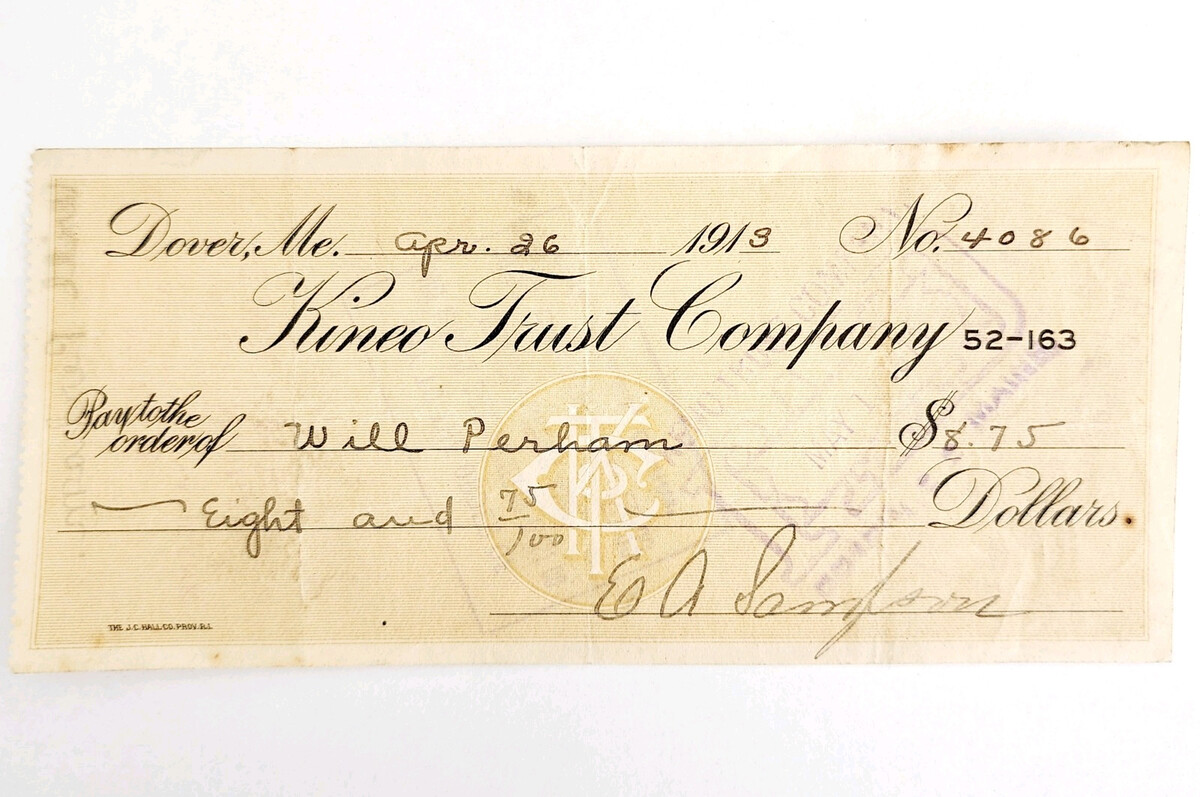 Dover, Me. Apr. 26 1913 No. 4086
Kineo Trust Company 52-163
Pay to the
order of Will Perham $8.75
Eight and 75/100 Dollars.
E A Sampson
THE J.C. HALL CO. PROV. R.I.
KTC
MAY 1